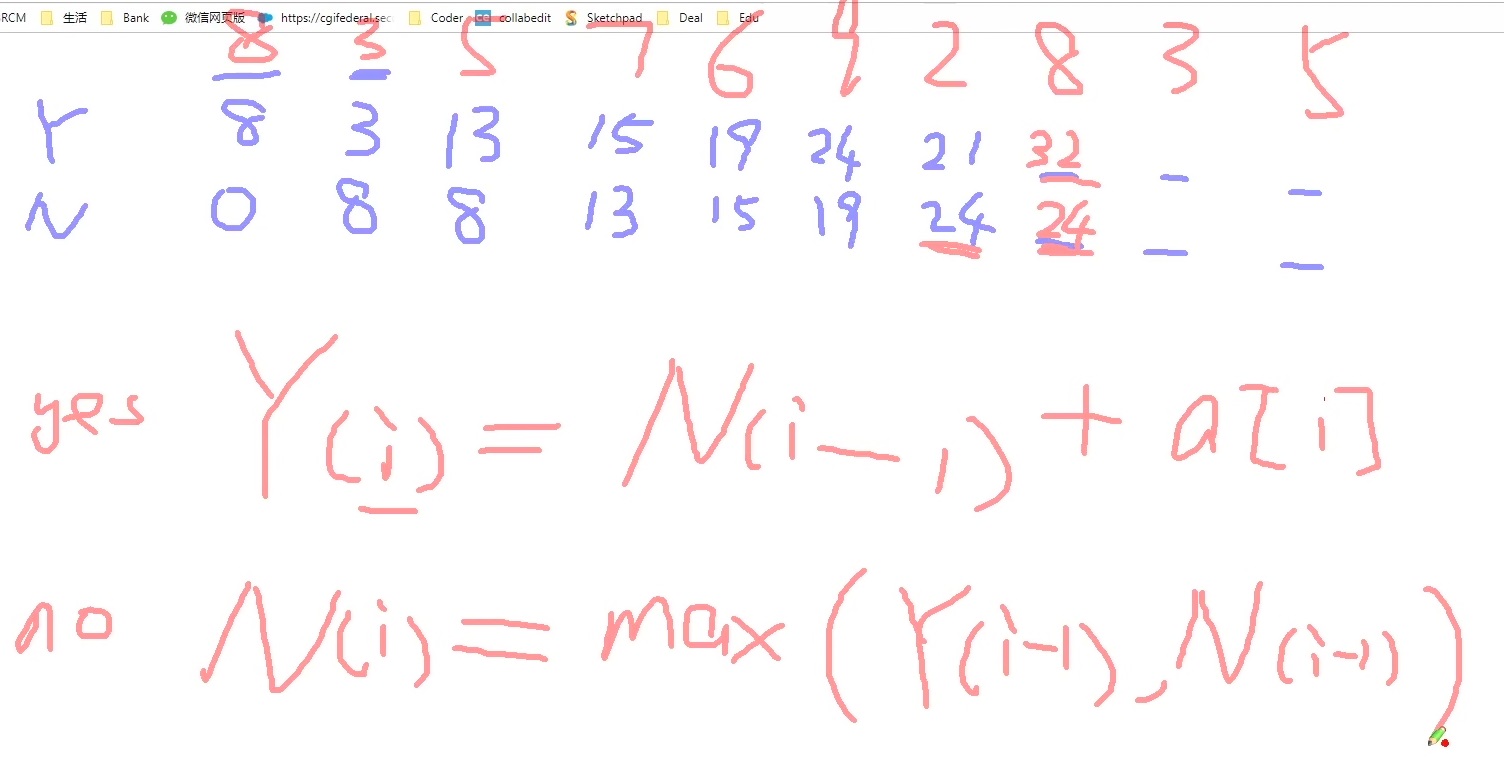 RCM 生活 Bank 微信网页版 https://cgifederal.sec Coder collabedit Sketchpad Deal Edu
8 3 5 7 6 4 2 8 3 5
Y 8 3 13 15 19 24 21 32 _ _
N 0 8 8 13 15 19 24 24 _ _
yes Y(i) = N(i-1) + a[i]
no N(i) = max(Y(i-1), N(i-1))